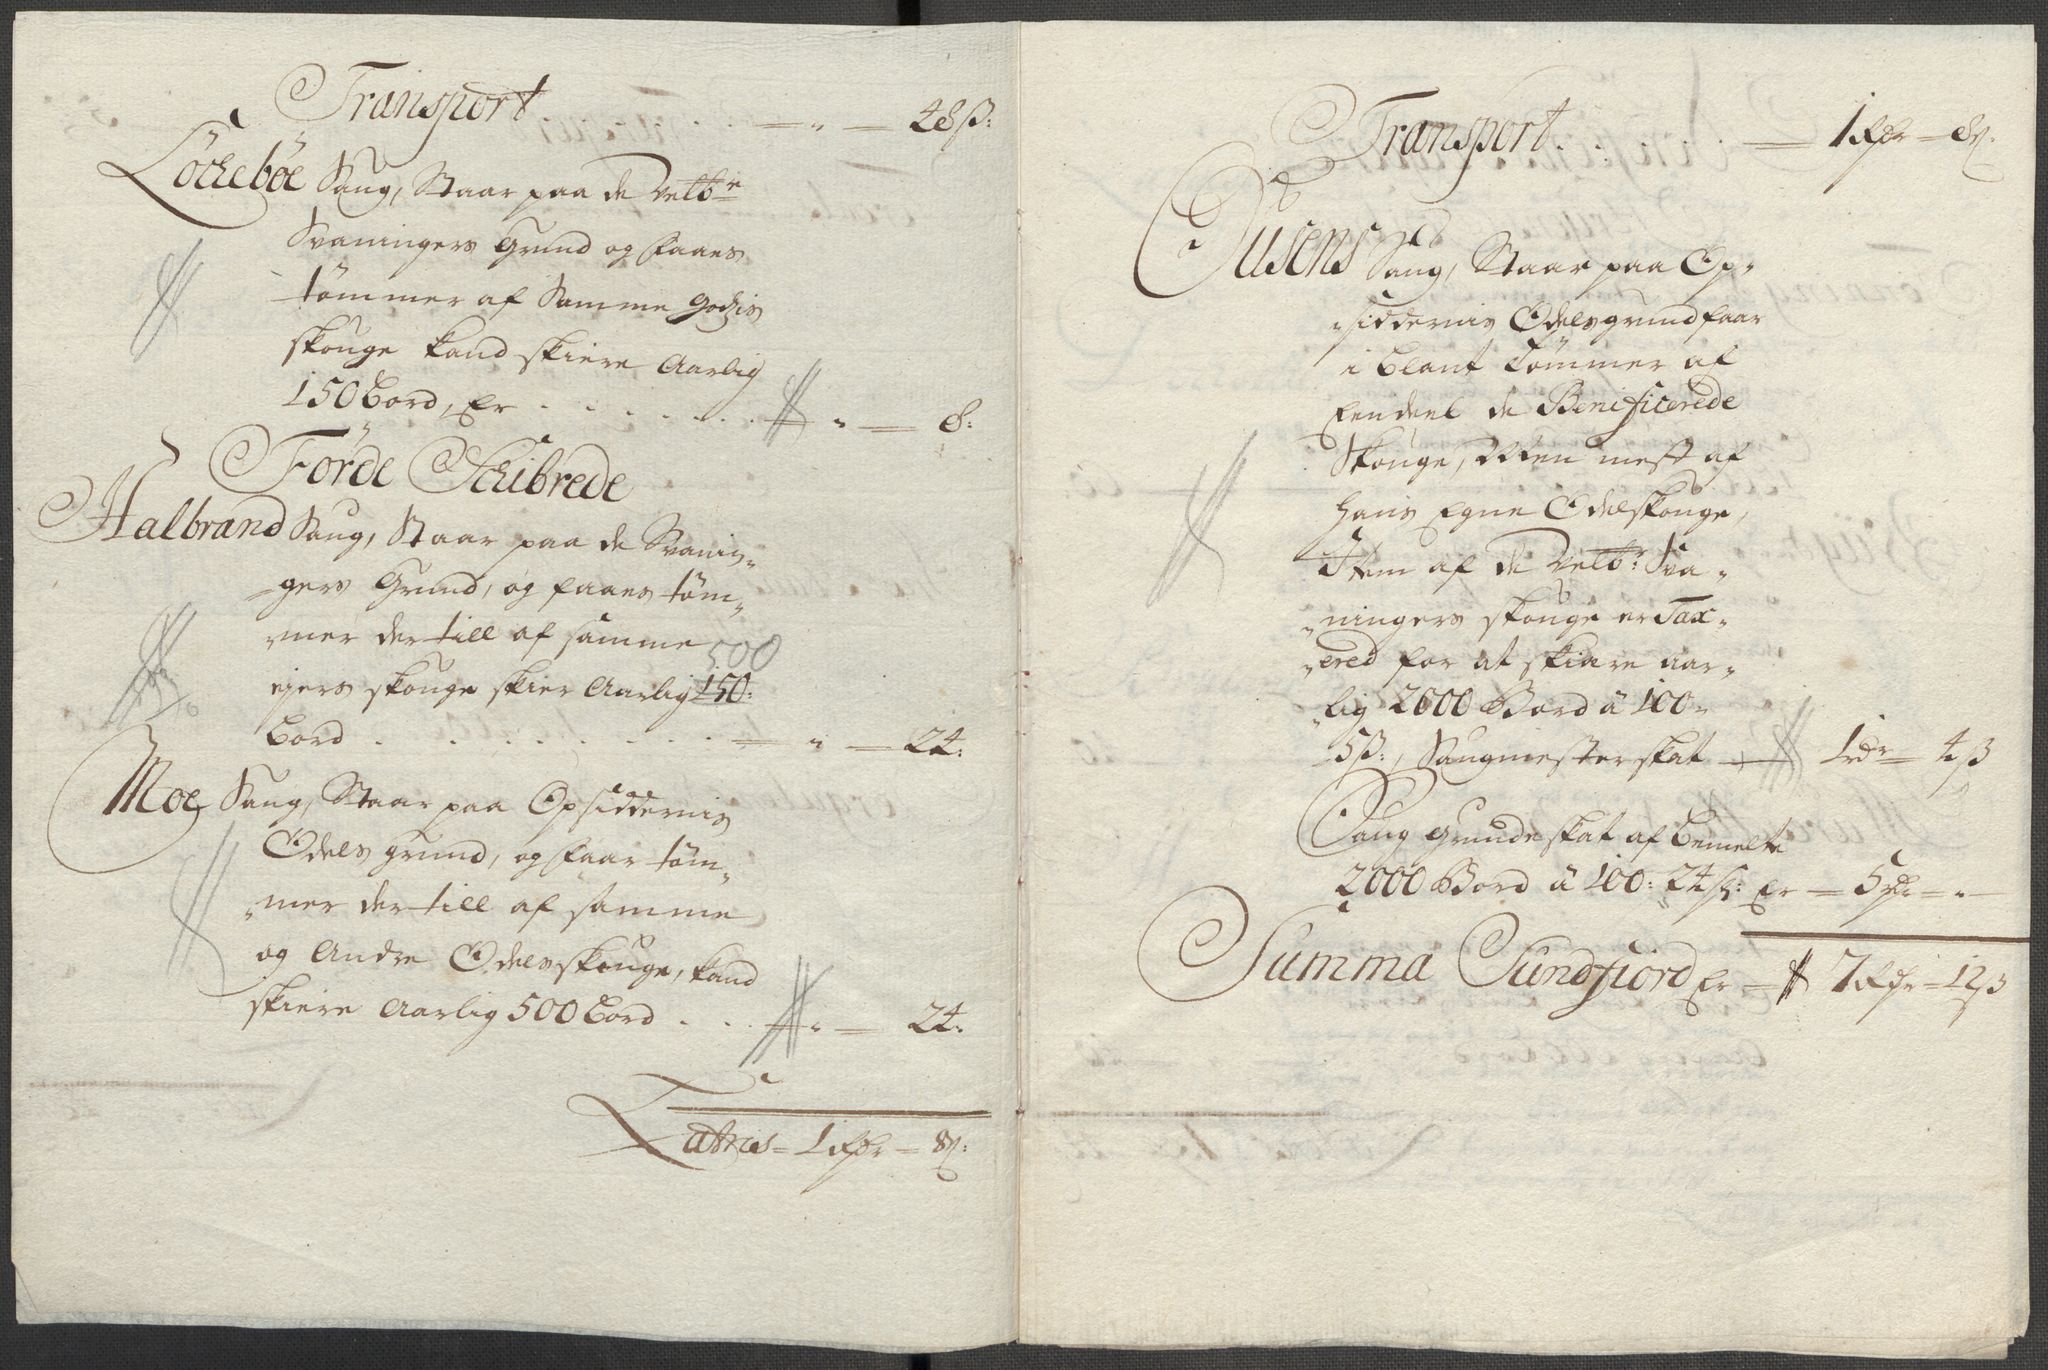 Transport . . — " — 48 ß:
Löchebøe Saug, Staar paa de Velbr
Svaningers Grund og faaes
tømmer af Samme Godzis
skouge kand skiere Aarlig
150 bord, Er . . . . . . . — " — 8:
Förde Schibrede
Halbrand Saug, Staar paa de Svanin„
„gers Grund, og faaes tøm„
„mer der till af samme
500
ejers skouge skier Aarlig 150:
bord . . . . . . . . — " — 24:
Moe Saug, Staar paa Opsiddernis
Odels grund, og faar tøm„
„mer der till af samme
og Andre Odelsskouge, kand
skiere Aarlig 500 bord . . . — " — 24:
Lateris = 1 Rdr = 8 ß:
Transport . . . . — 1 Rdr — 8 ß.
Eusens Saug, Staar paa Op„
„siddernis Odelsgrund faar
i blant Tømmer af
Eendeel de Benificerede
Skouge, Men mest af
hans Egne Odelskouge,
Item af de Velbr: Sva„
„ningers skouge er Tax„
„ered for at skiære aar„
„lig 2000 Bord â 100„
5 ß:, Saugmesterskat — 1 rdr — 4 ß
Saug Grunde skat af bemelte
2000 Bord â 100: 24 ß: Er — 5 rdr — "
Summa Sundfiord Er — 7 Rdr = 12 ß